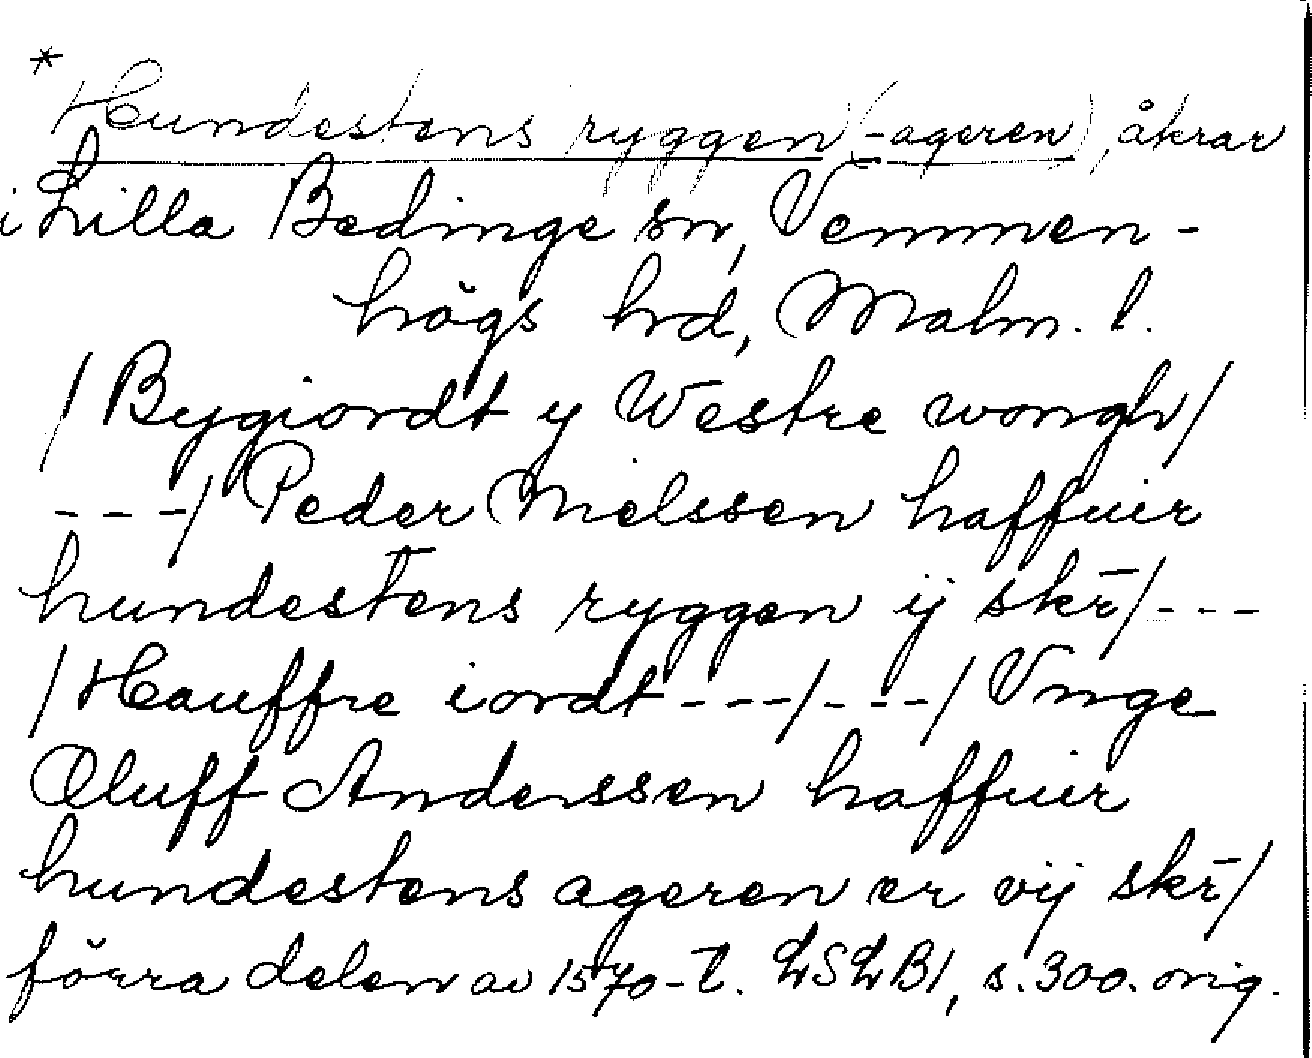 * Hundestens ryggen (-ageren), åkrar
i Lilla Bedinge sn, Vemmen-
högs hd, Malm. l.
/ Bygiordt y Westre wongh /
--- / Peder Nielssen haffuer
hundestens ryggen ij skr̄ / ---
/ Hauffre iordt --- / --- / Vnge
Oluff Anderssen haffuer
hundestens ageren er vij skr̄ /
förra delen av 1570-t. LSLB1, s. 300. orig.